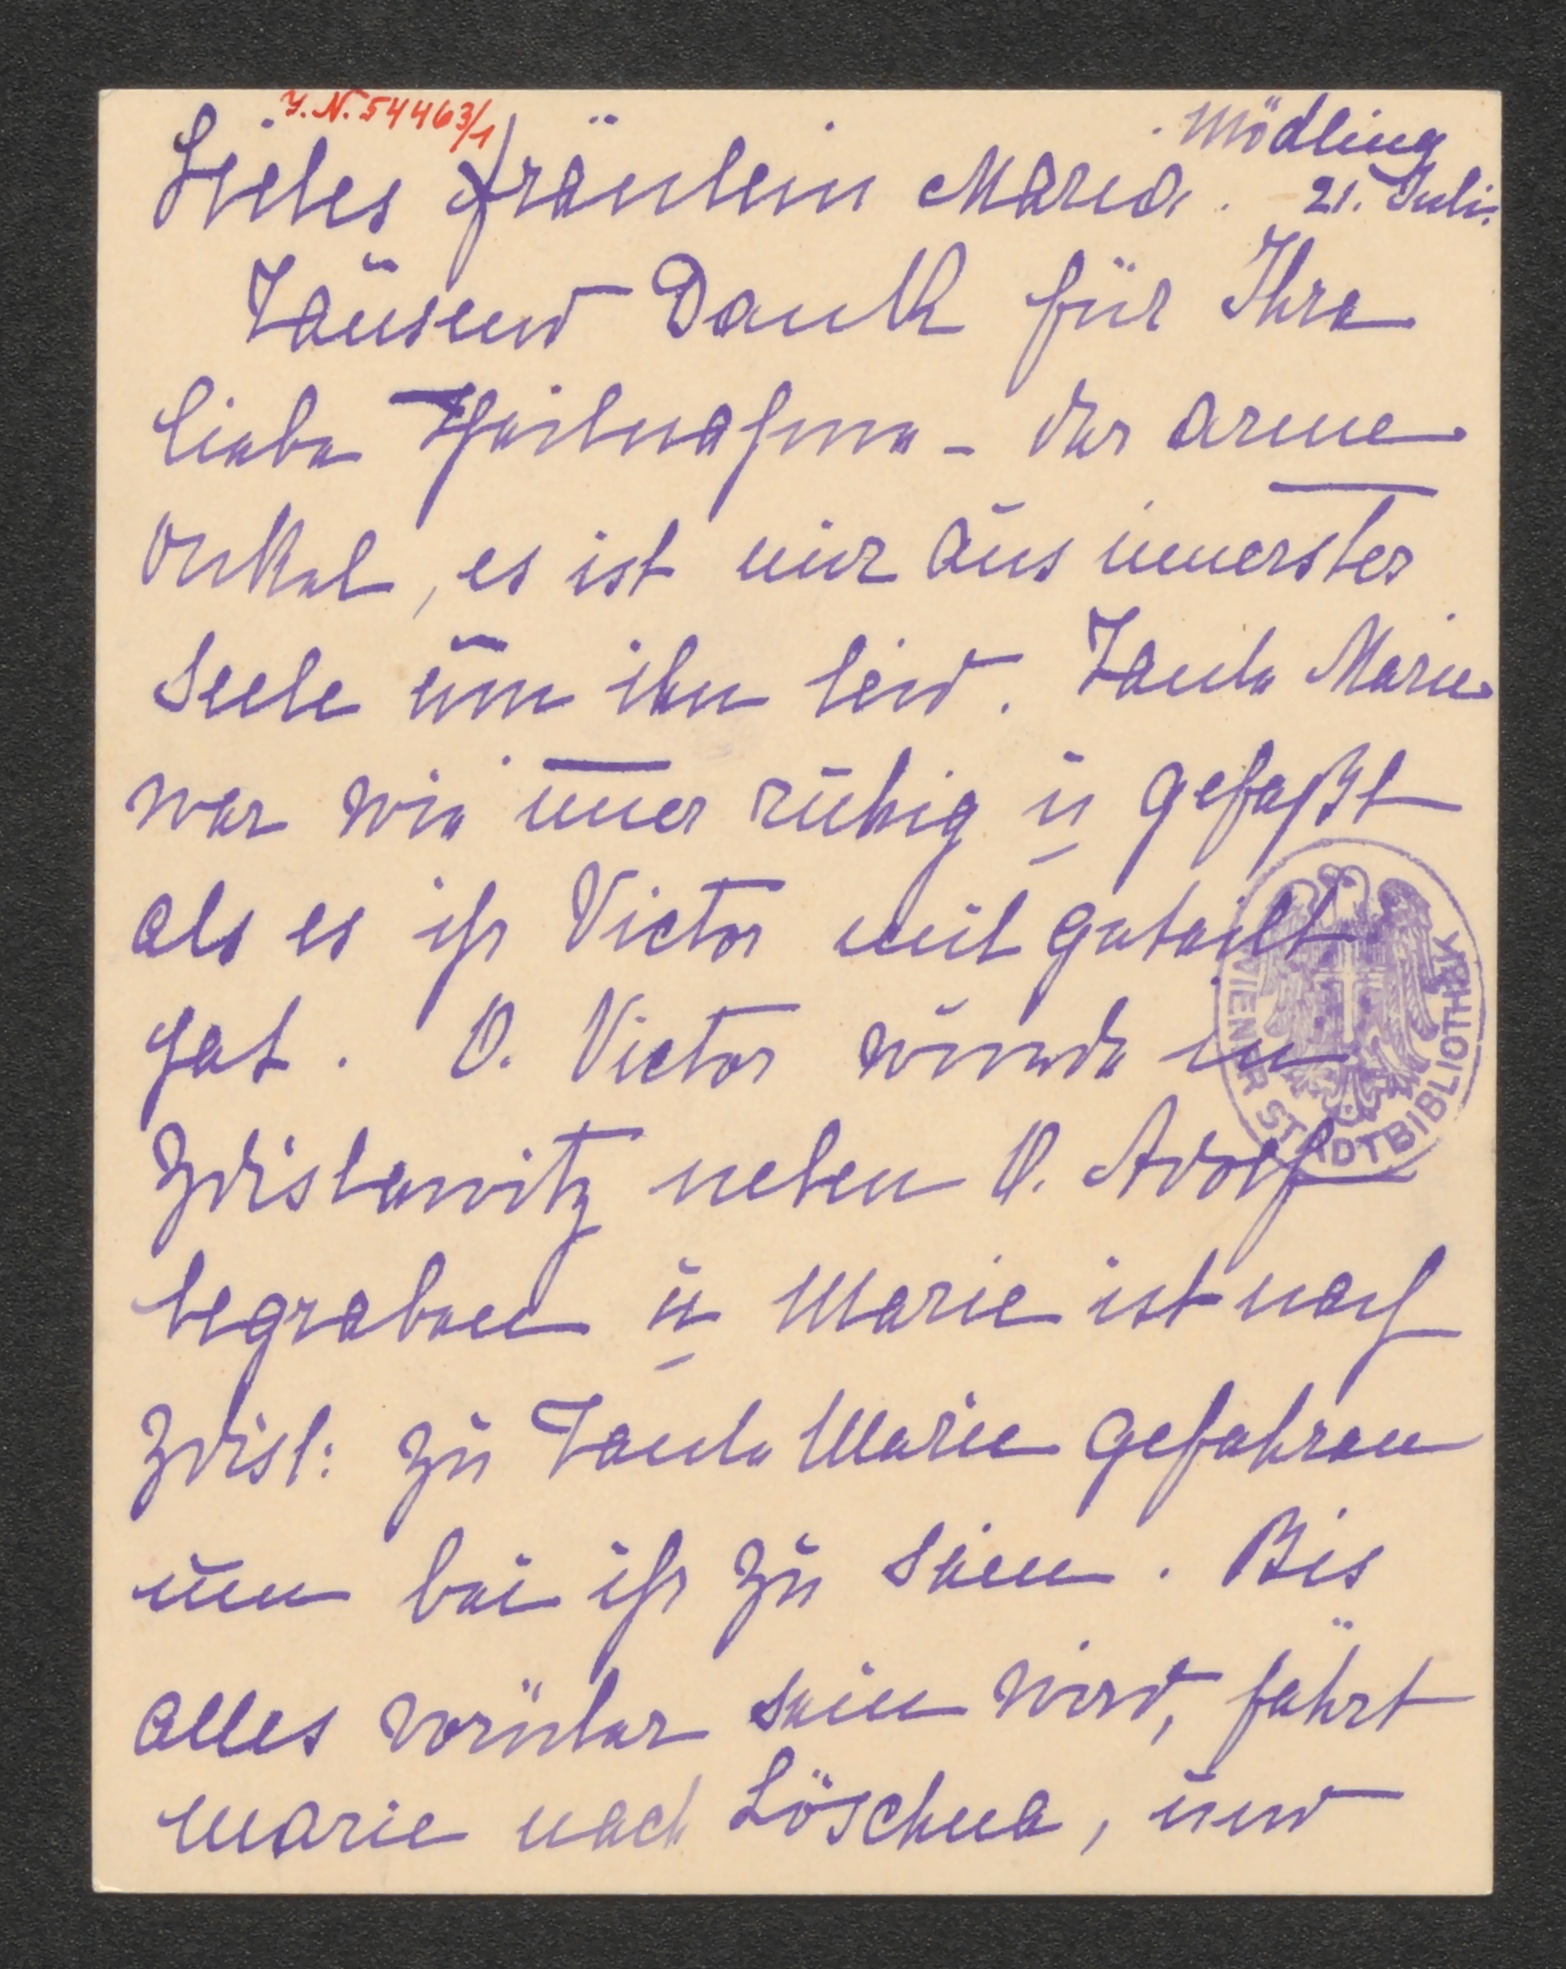 J.N. 54463/1
Mödling
Liebes Fräulein Maria. 21. Juli.
Tausend Dank für Ihre
liebe Theilnahme – der arme
Onkel, es ist mir aus innerster
Seele um ihn leid. Tante Marie
war wie im̅er ruhig u gefaßt
als es ihr Victor mit geteilt
hat. O. Victor wurde in
Zdislawitz neben O. Adolf
begraben u Marie ist nach
Zdisl: zu Tante Marie gefahren
um bei ihr zu sein. Bis
alles vorüber sein wird, fährt
Marie nach Löschna, und
WIENER STADTBIBLIOTHEK